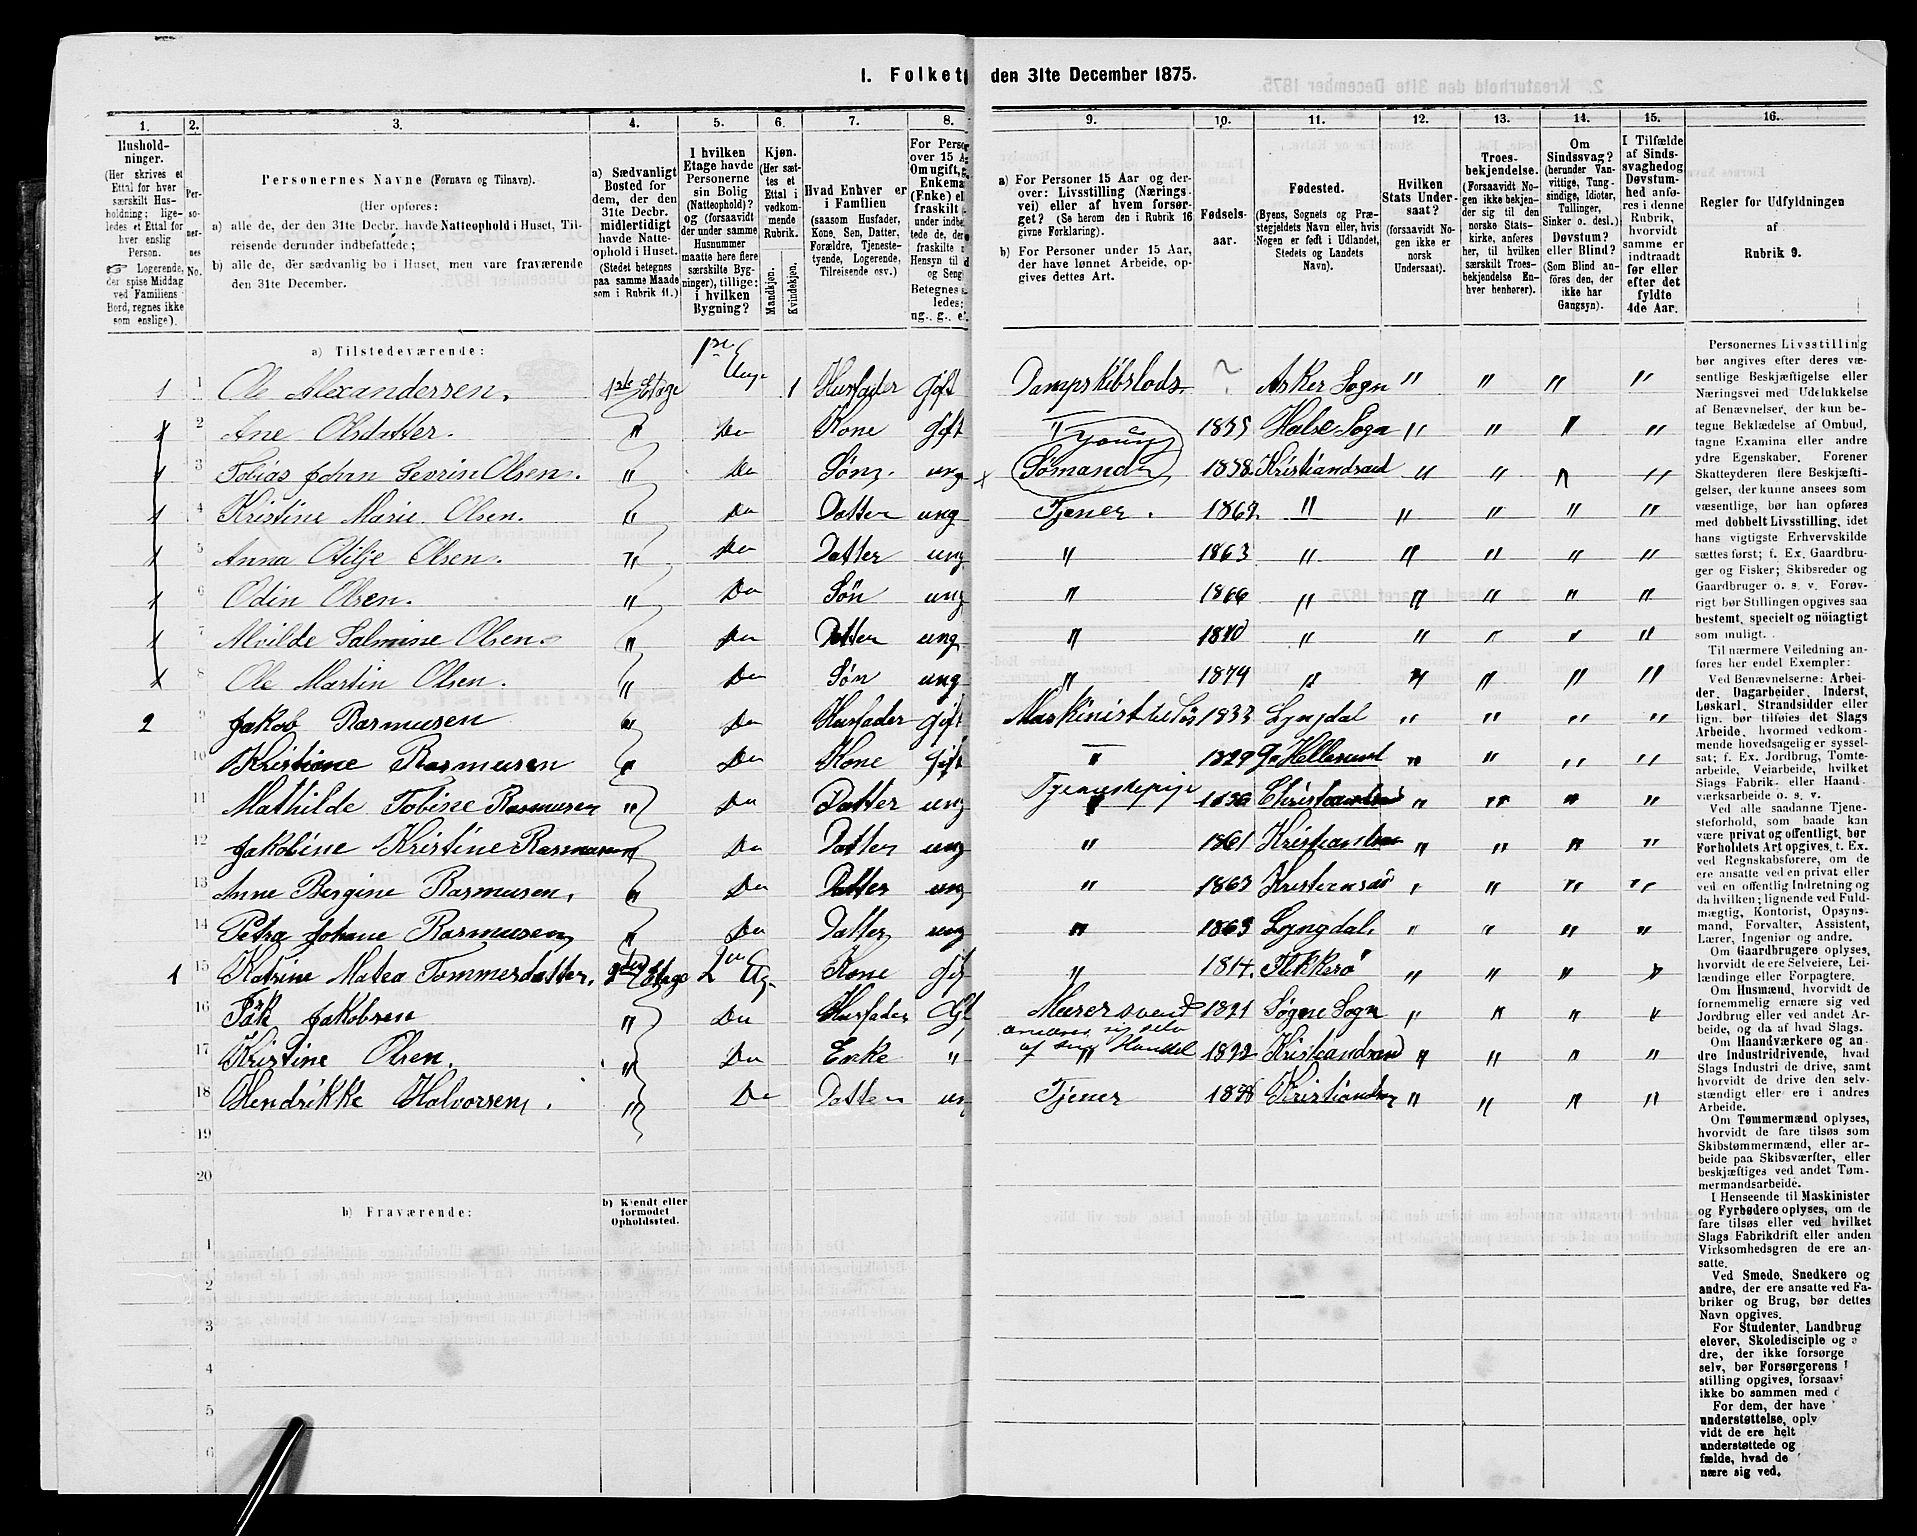 1. Folket den 31te December 1875.
1. 2. 3. 4. 5. 6. 7. 8. 9. 10. 11. 12. 13. 14. 15. 16.
Hushold-
ninger.
(Her skrives et
Ettal for hver
særskilt Hus-
holdning; lige-
ledes et Ettal for
hver enslig
Person.
☞ Logerende,
der spise Middag
ved Familiens
Bord, regnes ikke
som enslige).
Per-
so-
ner-
nes
No.
Personernes Navne (Fornavn og Tilnavn).
(Her opføres:
a) alle de, der den 31te Decbr. havde Natteophold i Huset, Til-
reisende derunder indbefattede;
b) alle de, der sædvanlig bo i Huset, men vare fraværende
den 31te December.
a) Sædvanligt
Bosted for
dem, der den
31te Decbr.
midlertidigt
havde Natte-
ophold i Huset.
(Stedet betegnes
paa samme Maade
som i Rubrik 11.)
I hvilken
Etage havde
Personerne
sin Bolig
(Natteophold)?
og (forsaavidt
der under samme
Husnummer
maatte høre flere
særskilte Byg-
ninger), tillige:
i hvilken
Bygning?
Kjøn.
(Her sæt-
tes et
Ettal i
vedkom-
mende
Rubrik.)
Mandkjøn.
Kvindekjøn.
Hvad Enhver er
i Familien
(saasom Husfader,
Kone, Søn, Datter,
Forældre, Tjeneste-
tyende, Logerende,
Tilreisende osv.)
For Perso
over 15 A
Om ugift, g
Enkema
(Enke) el
fraskilt
under indbe
tede de, de
fraskilte
Hensyn til
og Seng
Betegnes s
ledes:
ng., g., e.
a) For Personer 15 Aar og der-
over: Livsstilling (Nærings-
vei) eller af hvem forsør-
get? (Se herom den i Rubrik 16
givne Forklaring).
b) For Personer under 15 Aar,
der have lønnet Arbeide, op-
gives dettes Art.
Fødsels-
aar.
Fødested.
(Byens, Sognets og Præ-
stegjeldets Navn eller, hvis
Nogen er født i Udlandet,
Stedets og Landets
Navn).
Hvilken
Stats Under-
saat?
(forsaavidt No-
gen ikke er
norsk
Undersaat).
Troes-
bekjendelse.
(Forsaavidt No-
gen ikke bekjen-
der sig til den
norske Stats-
kirke, anføres
her, til hvilken
særskilt Troes-
bekjendelse En-
hver henhører).
Om
Sindssvag?
(herunder Van-
vittige, Tung-
sindige, Idioter,
Tullinger,
Sinker o. desl.)
Døvstum?
eller Blind?
(Som Blind an-
føres den, der
ikke har
Gangsyn).
I Tilfælde
af Sinds-
svaghed og
Døvstum-
hed anfø-
res i denne
Rubrik,
hvorvidt
samme er
indtraadt
før eller
efter det
fyldte
4de Aar.
Regler for Udfyldningen
af
Rubrik 9.
a) Tilstedeværende:
1 1 Ole Alexandersen. 1ste Etage 1 Husfader Gift Dampskibslods ? Asker Sogn " " " "
1 2 Ane Olsdatter. " Do Kone Gift " 1835 Halse Sogn " " " "
1 3 Tobias Johan Sevrin Olsen. " Do Søn. ung Sømand 1858 Kristiandsand " " " "
1 4 Kristine Marie Olsen. " Do Datter ung Tjener. " " " " "
1 5 Anna Otilje Olsen. " Do Datter ung " 1863 " " " " "
1 6 Odin Olsen. " Do Søn ung " 1866 " " " " "
1 7 Alvilde Salmine Olsen " Do Datter ung " 1870 " " " " "
1 8 Ole Martin Olsen. " Do Søn ung " 1874 " " " " "
2 9 Jakob Rasmusen " Do Husfader Gift Maskinist 1833 Lyngdal " " " "
10 Kristiane Rasmusen " Do Kone Gift " 1829 Hellesund " " " "
11 Mathilde Tobine Rasmusen " Do Datter ung Tjenestepige Christiansand " " " "
12 Jakobine Kristine Rasmusen " Do Datter ung " 1861 Kristiansan " " " "
13 Anne Bergine Rasmusen. " Do Datter ung " 1863 " " " "
14 Petra Johane Rasmusen " Do Datter ung " Lyngdal. " " " "
1 15 Katrine Matea Tommesdatter. Etage Kone Gif " 1814. Flekkerø " " " "
16 Jakobsen " Do Husfader Murersvend Søgne Sogn " " " "
17 Kristine Olsen. " Do Enke " ernærer sig selv af sin Handel Kristiandsand " " " "
18 Hendrikke Halvorsen. " Do Datter un Tjener Kristiandsa " " " "
19
20
b) Fraværende:
b) Kjendt eller
formodet
Opholdssted.
1
2
3
4
5
6
Personernes Livsstilling
bør angives efter deres væ-
sentlige Beskjæftigelse eller
Næringsvei med Udelukkelse
af Benævnelser, der kun be-
tegne Beklædelse af Ombud,
tagne Examina eller andre
ydre Egenskaber. Forener
Skatteyderen flere Beskjæfti-
gelser, der kunne ansees som
væsentlige, bør han opføres
med dobbelt Livsstilling, idet
hans vigtigste Erhvervskilde
sættes først; f. Ex. Gaardbru-
ger og Fisker; Skibsreder og
Gaardbruger o. s. v. Forøv-
rigt bør Stillingen opgives saa
bestemt, specielt og nøiagtigt
som muligt.
Til nærmere Veiledning an-
føres her endel Exempler:
Ved Benævnelserne: Arbei-
der, Dagarbeider, Inderst,
Løskarl, Strandsidder eller
lign. bør tilføies det Slags
Arbeide, hvormed vedkom-
mende hovedsagelig er syssel-
sat; f. Ex. Jordbrug, Tomte-
arbeide, Veiarbeide, hvilket
Slags Fabrik- eller Haand-
værksarbeide o. s. v.
Ved alle saadanne Tjene-
steforhold, som baade kan
være privat og offentligt, bør
Forholdets Art opgives, t. Ex.
ved Regnskabsførere, om de
ere ansatte ved en privat eller
ved en offentlig Indretning og
da hvilken; lignende ved Fuld-
mægtig, Kontorist, Opsyns-
mand, Forvalter, Assistent,
Lærer, Ingeniør og andre.
Om Gaardbrugere oplyses,
hvorvidt de ere Selveiere, Lei-
lændinge eller Forpagtere.
Om Husmænd, hvorvidt de
fornemmelig ernære sig ved
Jordbrug eller ved andet Ar-
beide, og da af hvad Slags.
Om Haandværkere og an-
dre Industridrivende, hvad
Slags Industri de drive, samt
hvorvidt de drive den selv-
stændigt eller ere i andres
Arbeide.
Om Tømmermænd oplyses,
hvorvidt de fare tilsøs som
Skibstømmermænd, eller ar-
beide paa Skibsværfter, eller
beskjæftiges ved andet Tøm-
mermandsarbeide.
I Henseende til Maskinister
og Fyrbødere oplyses, om de
fare tilsøs eller ved hvilket
Slags Fabrikdrift eller anden
Virksomhedsgren de ere an-
satte.
Ved Smede, Snedkere og
andre, der ere ansatte ved Fa-
briker og Brug, bør dettes
Navn opgives.
For Studenter, Landbrug
elever, Skoledisciple og
dre, der ikke forsørge
selv, bør Forsørgerens
stilling opgives, forsaavi
ikke bo sammen med
For dem, der have
understøttelse, oplv
vidt de ere helt
understøttede og
fælde, hvad de
nære sig ved.